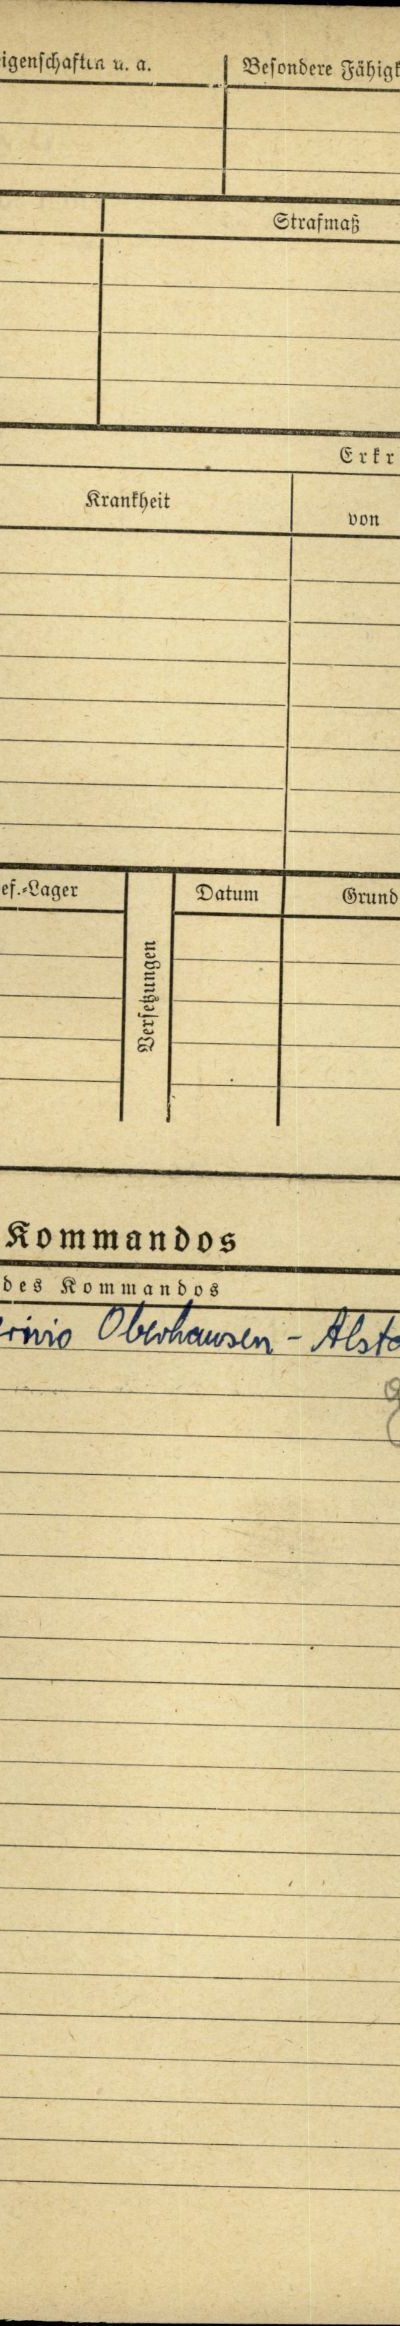 igenschaften u. a. Besondere Fähigk
Strafmaß
Erkr
Krankheit von
ef.-Lager Versetzungen Datum Grund
Kommandos
des Kommandos
Oberhausen - Alsta